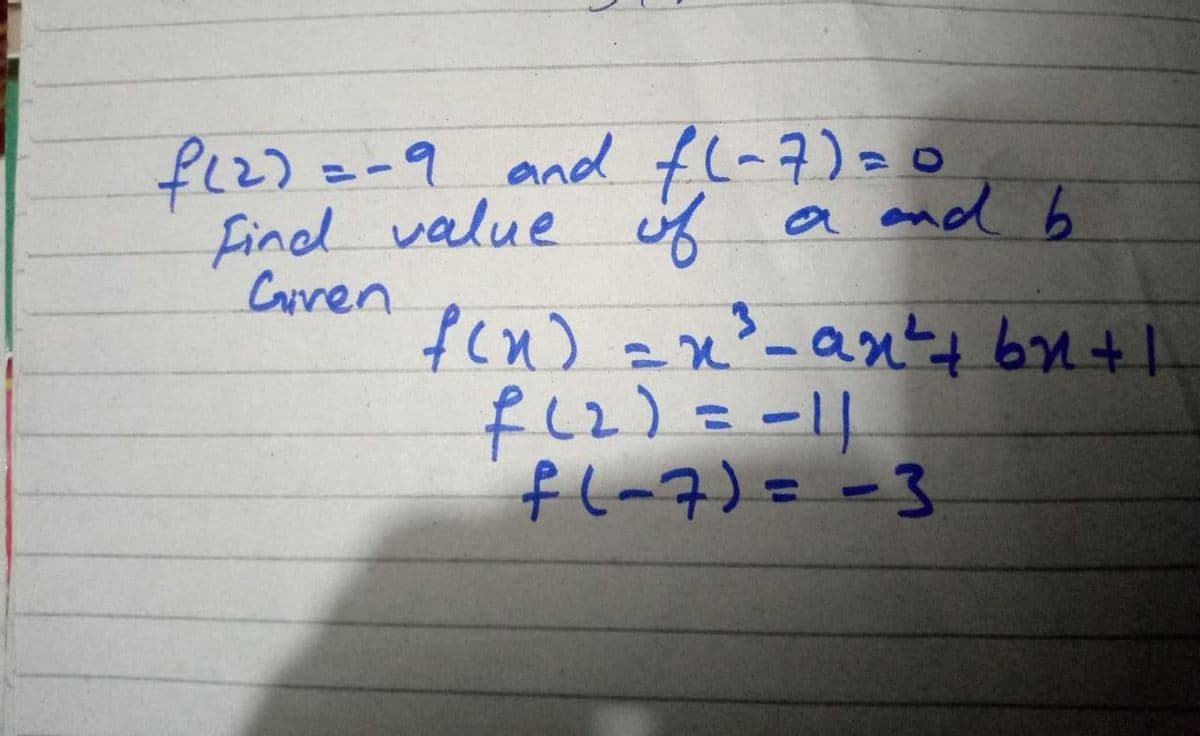 f(2) = -9 and f(-7) = 0
Find value of a and b
Given
f(x) = x³ - ax² + bx + 1
f(2) = -11
f(-7) = -3